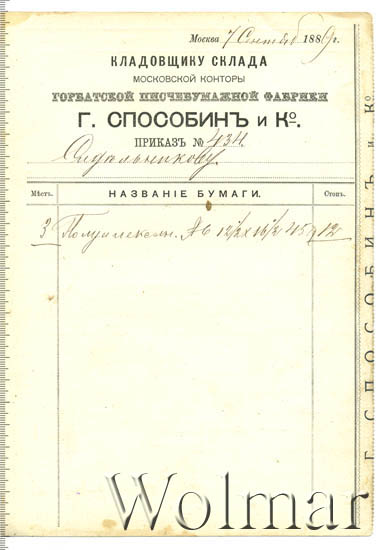 Москва 7 Сентября 1889 г.
КЛАДОВЩИКУ СКЛАДА
МОСКОВСКОЙ КОНТОРЫ
ТОРБАТСКОЙ ПИСЧЕБУМАЖНОЙ ФАБРИКИ
Г. СПОСОБИНЪ И Кº.
ПРИКАЗЪ № 434.
Сидальникову.
Мѣстъ. НАЗВАНІЕ БУМАГИ. Стопъ.
3 № 6 12½ x 16½ 45 12
Г. СПОСОБИНЪ И Кº
Wolmar